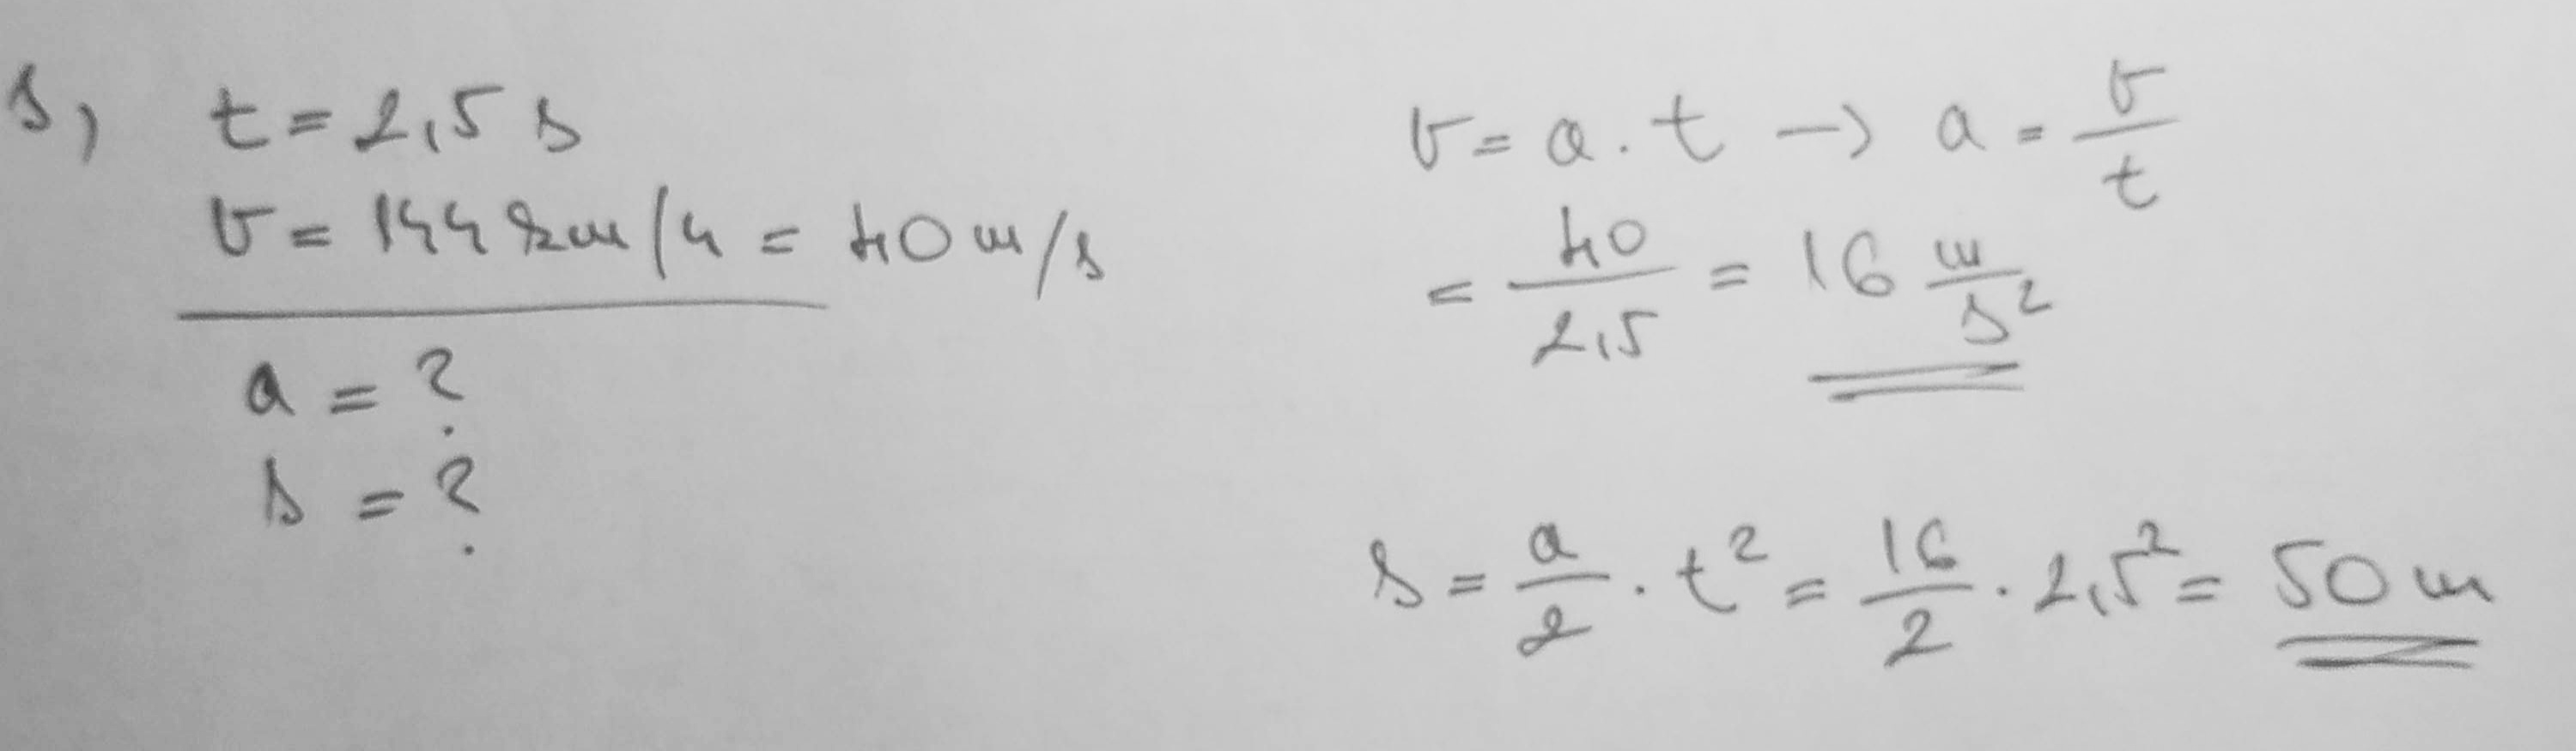 s, t = 2,5 s
v = 144 km/h = 40 m/s
a = ?
s = ?
v = a · t → a = v/t
= 40/2,5 = 16 m/s²
s = a/2 · t² = 16/2 · 2,5² = 50 m